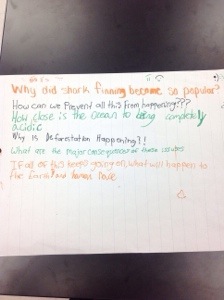 Why did shark finning become so popular?
How can we Prevent all this from happening???
How close is the Ocean to being completely
acidic
Why is Deforestation Happening?!
What are the major consequences of these issues
If all of this keeps going on, what will happen to
the Earth and human Race